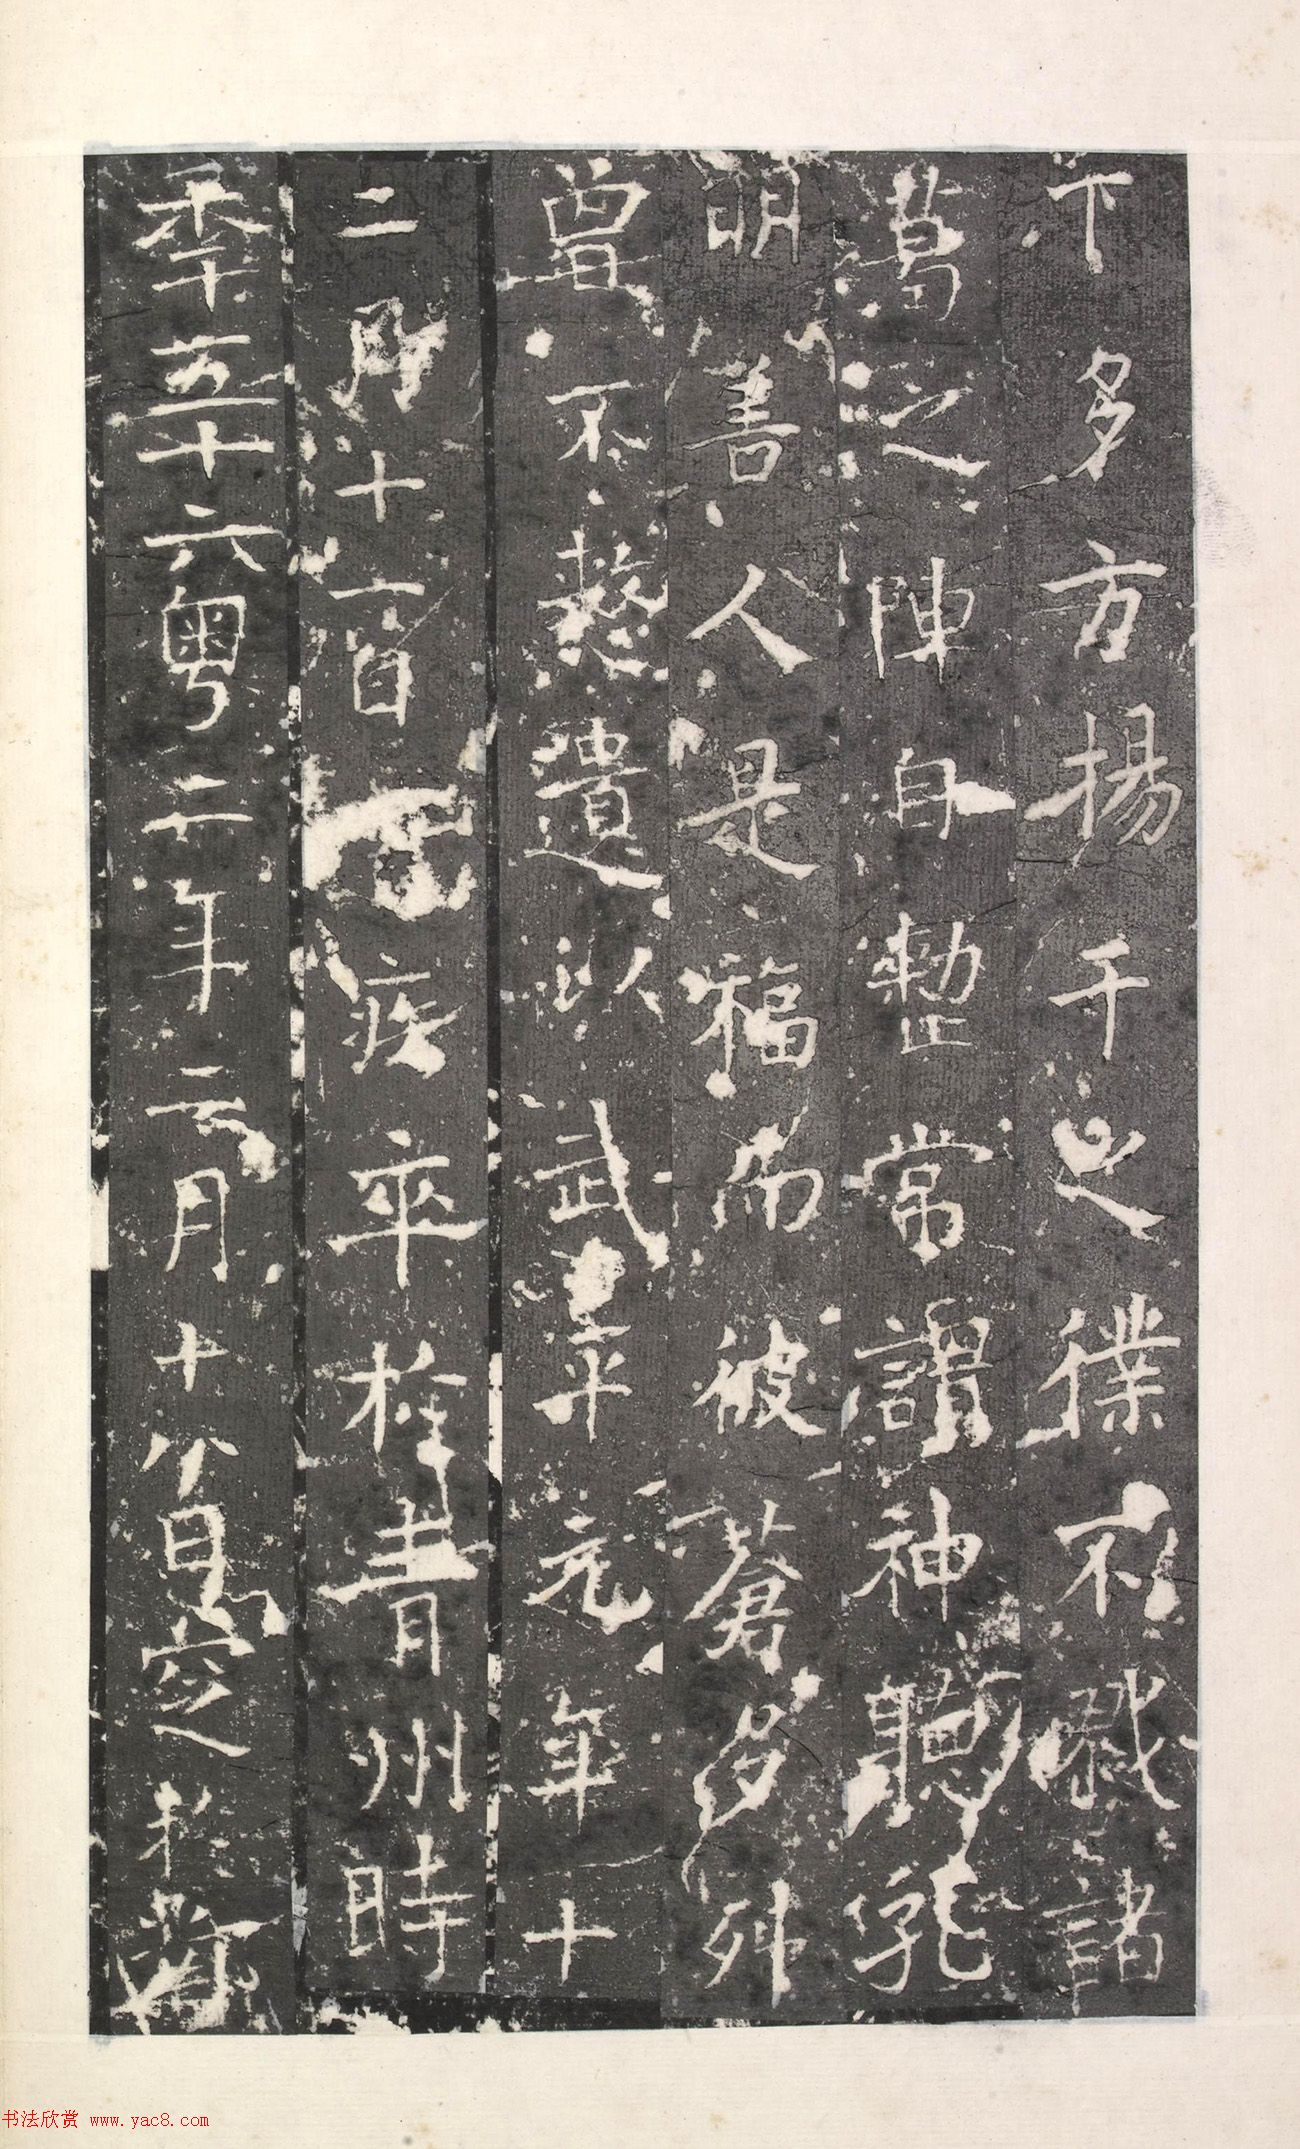 下多方揚于之僕不戮諸
葛之陣自整常謂神聽孔
明善人是福而彼蒼多舛
曾不憖遺以武平元年十
二月十一日疾卒於青州時
季五十六粵二年二月十八日定於
书法欣赏 www.yac8.com